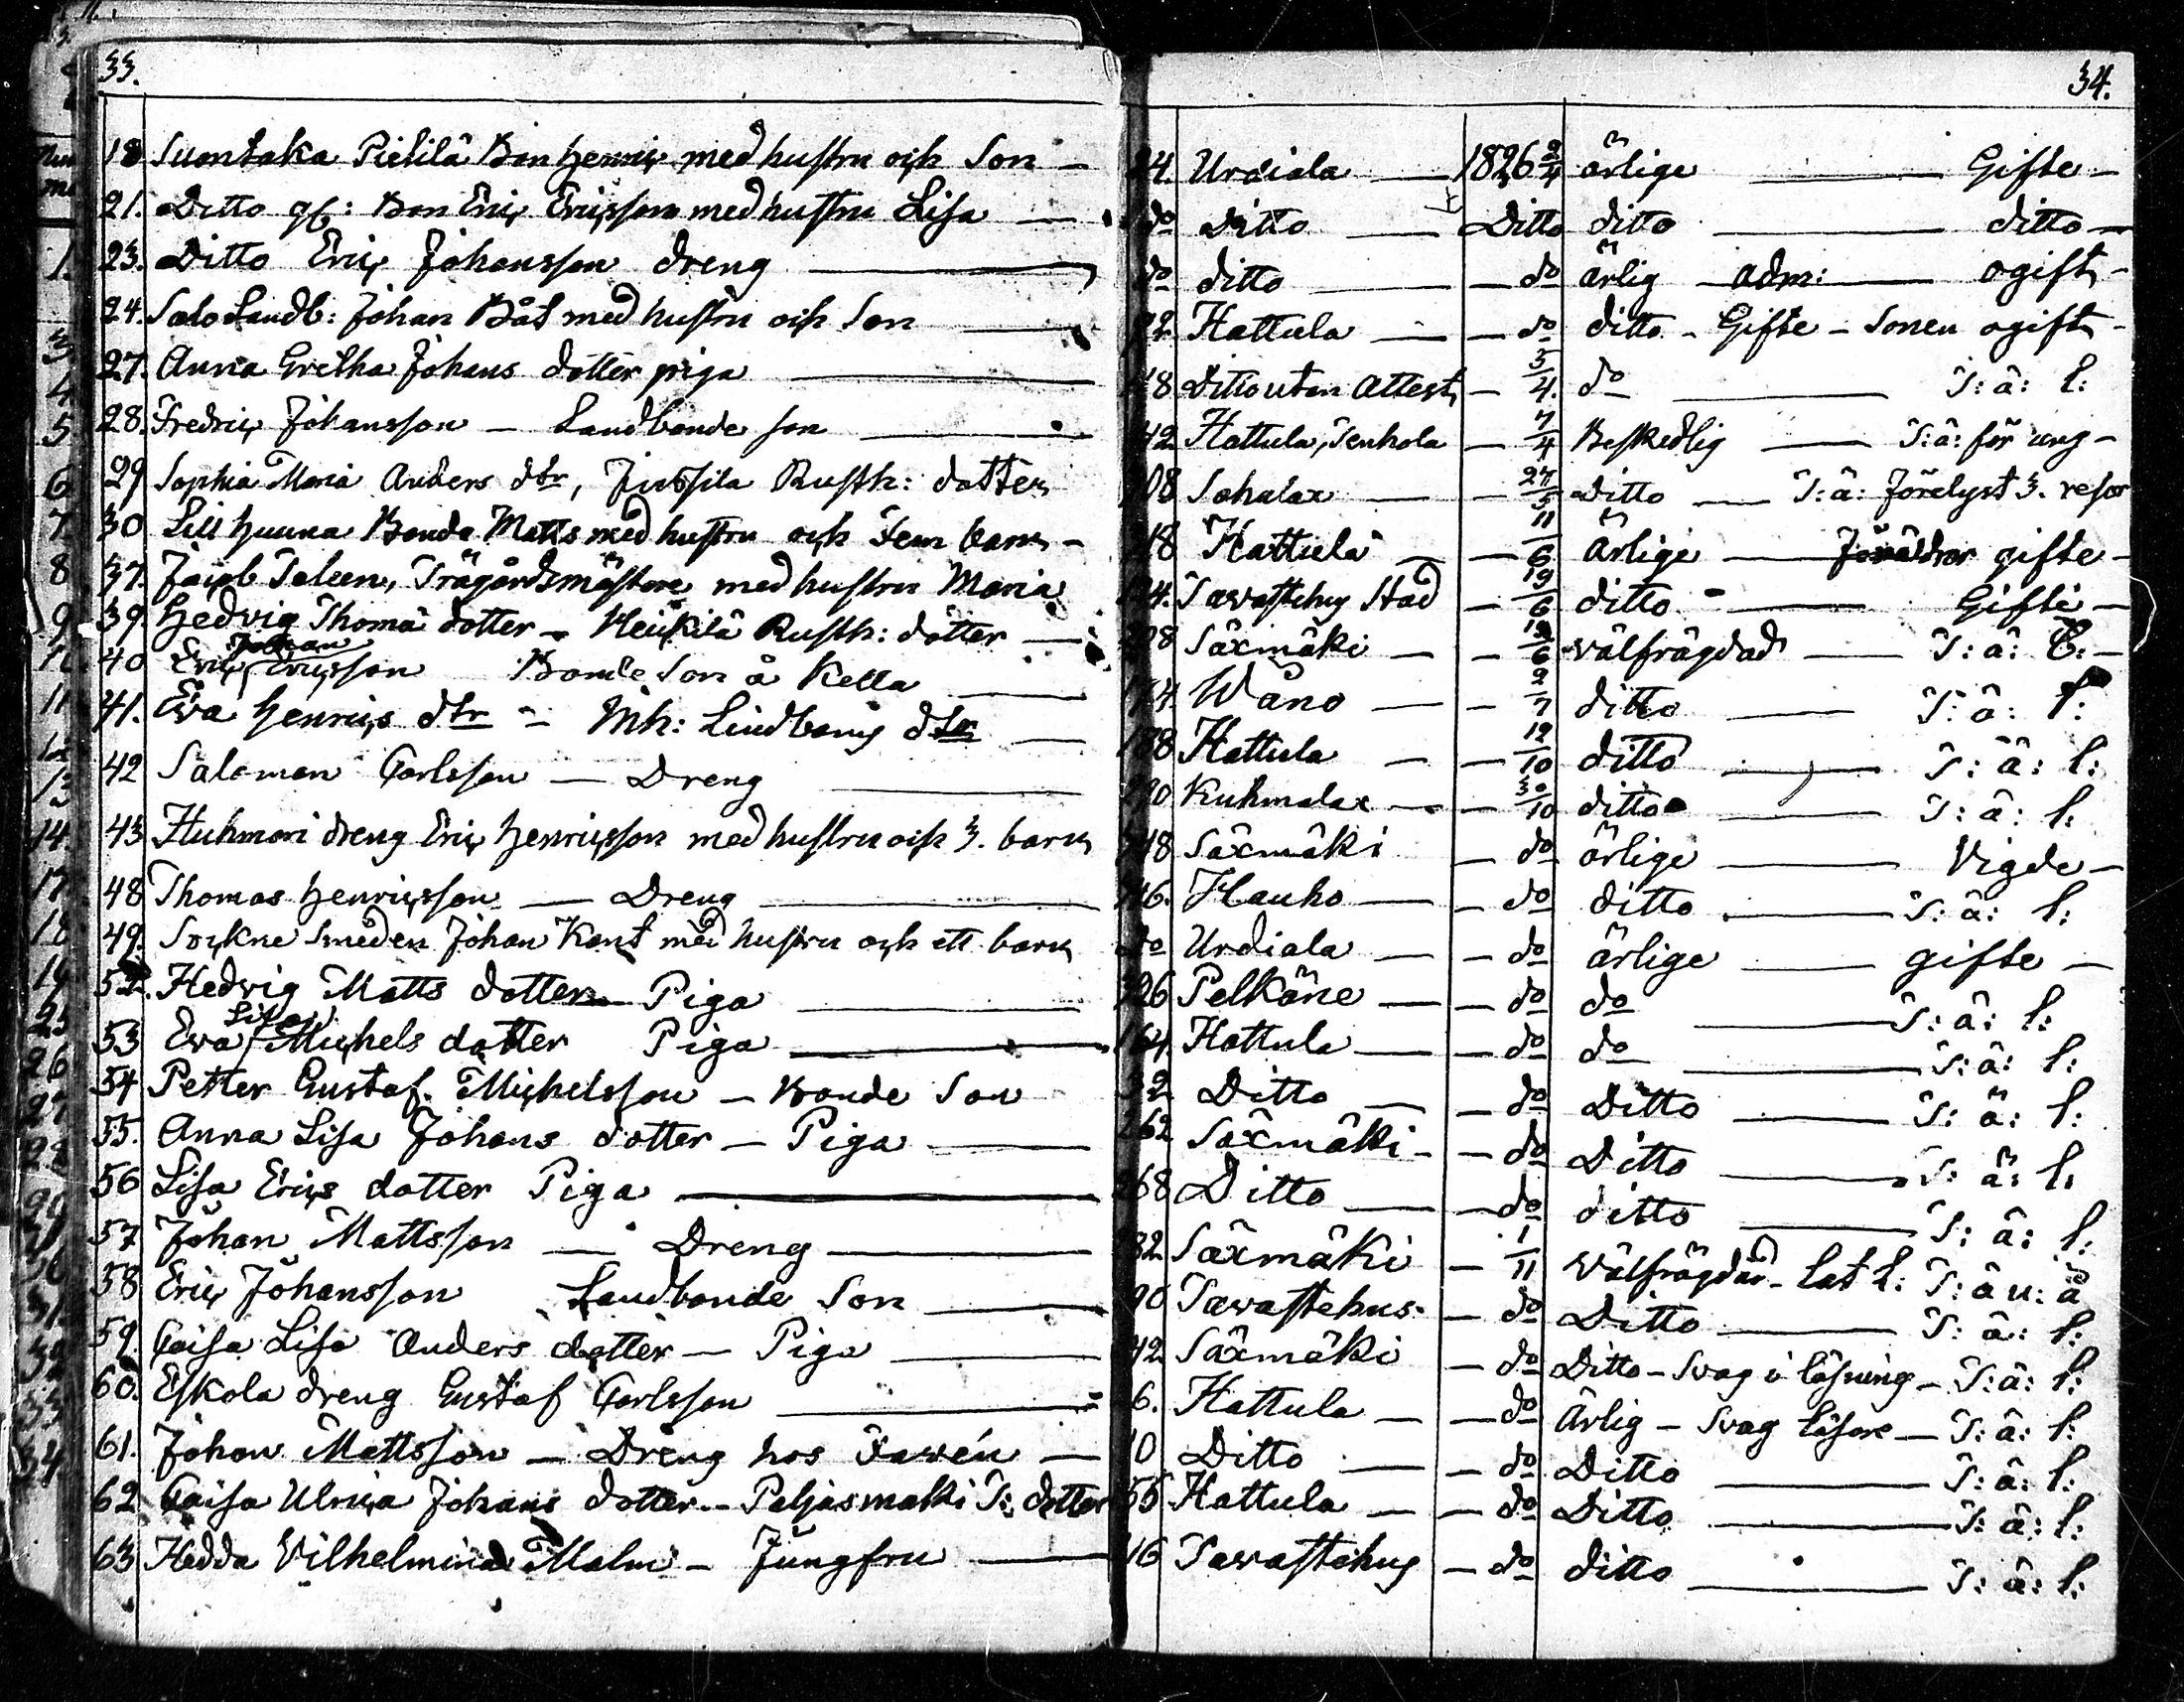 33.
18 Suontaka Pietilä Bon Henric med hustru och Son —
21. Ditto gl: Bon Eric Ericsson med hustru Lisa —
23. Ditto Eric Johansson dreng —
24. Salo Landb: Johan Båt med hustru och Son —
27. Anna Gretha Johans dotter piga —
28. Fredric Johansson — Landbonde son —
29 Sophia Maria Anders dtr, Jussila Rusth: dotter
30 Lill Huuna Bonda Matts med hustru och fem barn —
37. Jacob Taleen, Trägårdsmästare med hustru Maria
39. Hedvig Thomä dotter — Heickilä Rusth: dotter —
Johan
40 Eric Ericsson Bonde Son å Kella —
41. Eva Henrics dtr — Inh: Lindbergs dtr —
42 Salomon Carlsson — Dreng —
43 Huhmari dreng Eric Henricsson med hustru och 3. barn
48 Thomas Henricsson — Dreng —
49. Sockne Smeden Johan Kant med hustru och ett barn
52. Hedvig Matts dotter — Piga —
Lisa
53 Eva Michels dotter Piga —
54 Petter Gustaf Michelsson — Bonde Son
55. Anna Lisa Johans dotter — Piga —
56 Lisa Erics dotter Piga —
57 Johan Mattsson — Dreng —
58 Eric Johansson Landbonde Son —
59. Caisa Lisa Anders dotter — Piga —
60. Eskola dreng Gustaf Carlsson —
61. Johan Mattsson — Dreng hos Fawén —
62 Caisa Ulrica Johans dotter — Paljasmaki T: dotter
63 Hedda Vilhelmina Malm — Jungfru —
34.
24. Urdiala — 1826 2/4 ärlige — Gifte —
do Ditto — Ditto ditto — ditto —
do ditto — do ärlig — adm: — ogift —
Hattula — do ditto — Gifte — Sonen ogift —
Ditto utan Attest — 5/4. do — T: ä: l:
42 Hattula, Tenhola — 7/4 Beskedlig — T: ä: för ung —
Sahalax — 27/5 ditto — T: ä: förelyst 3. resor
Hattula — 11/6 Ärlige — Föräldrar gifte —
Tawastehus Stad — 19/6 ditto — Gifte —
Säxmäki — 19/6 välfrägdad — T: ä: l: —
Wåno — 2/7 ditto — T: ä: l:
188 Hattula — 12/10 ditto — T: ä: l:
Kuhmalax — 30/10 ditto — T: ä: l:
Säxmäki — do ärlige — Vigde —
Hauho — do ditto — T: ä: l:
do Urdiala — do ärlige — gifte —
Pelkäne — do do — T: ä: l:
164. Hattula — do do — T: ä: l:
32 Ditto — do Ditto — T: ä: l:
262 Säxmäki — do Ditto — T: ä: l:
268 Ditto — do ditto — T: ä: l:
82 Säxmäki — 1/11 välfrägdad — Lat L: T: ä u: ä
90 Tavastehus — do Ditto — T: ä: l:
42 Säxmäki — do Ditto — Svag i läsning — T: ä: l:
6. Hattula — do Ärlig — Svag läsare — T: ä: l:
10 Ditto — do Ditto — T: ä: l:
55 Hattula — do Ditto — T: ä: l:
16 Tavastehus — do ditto — T: ä: l: